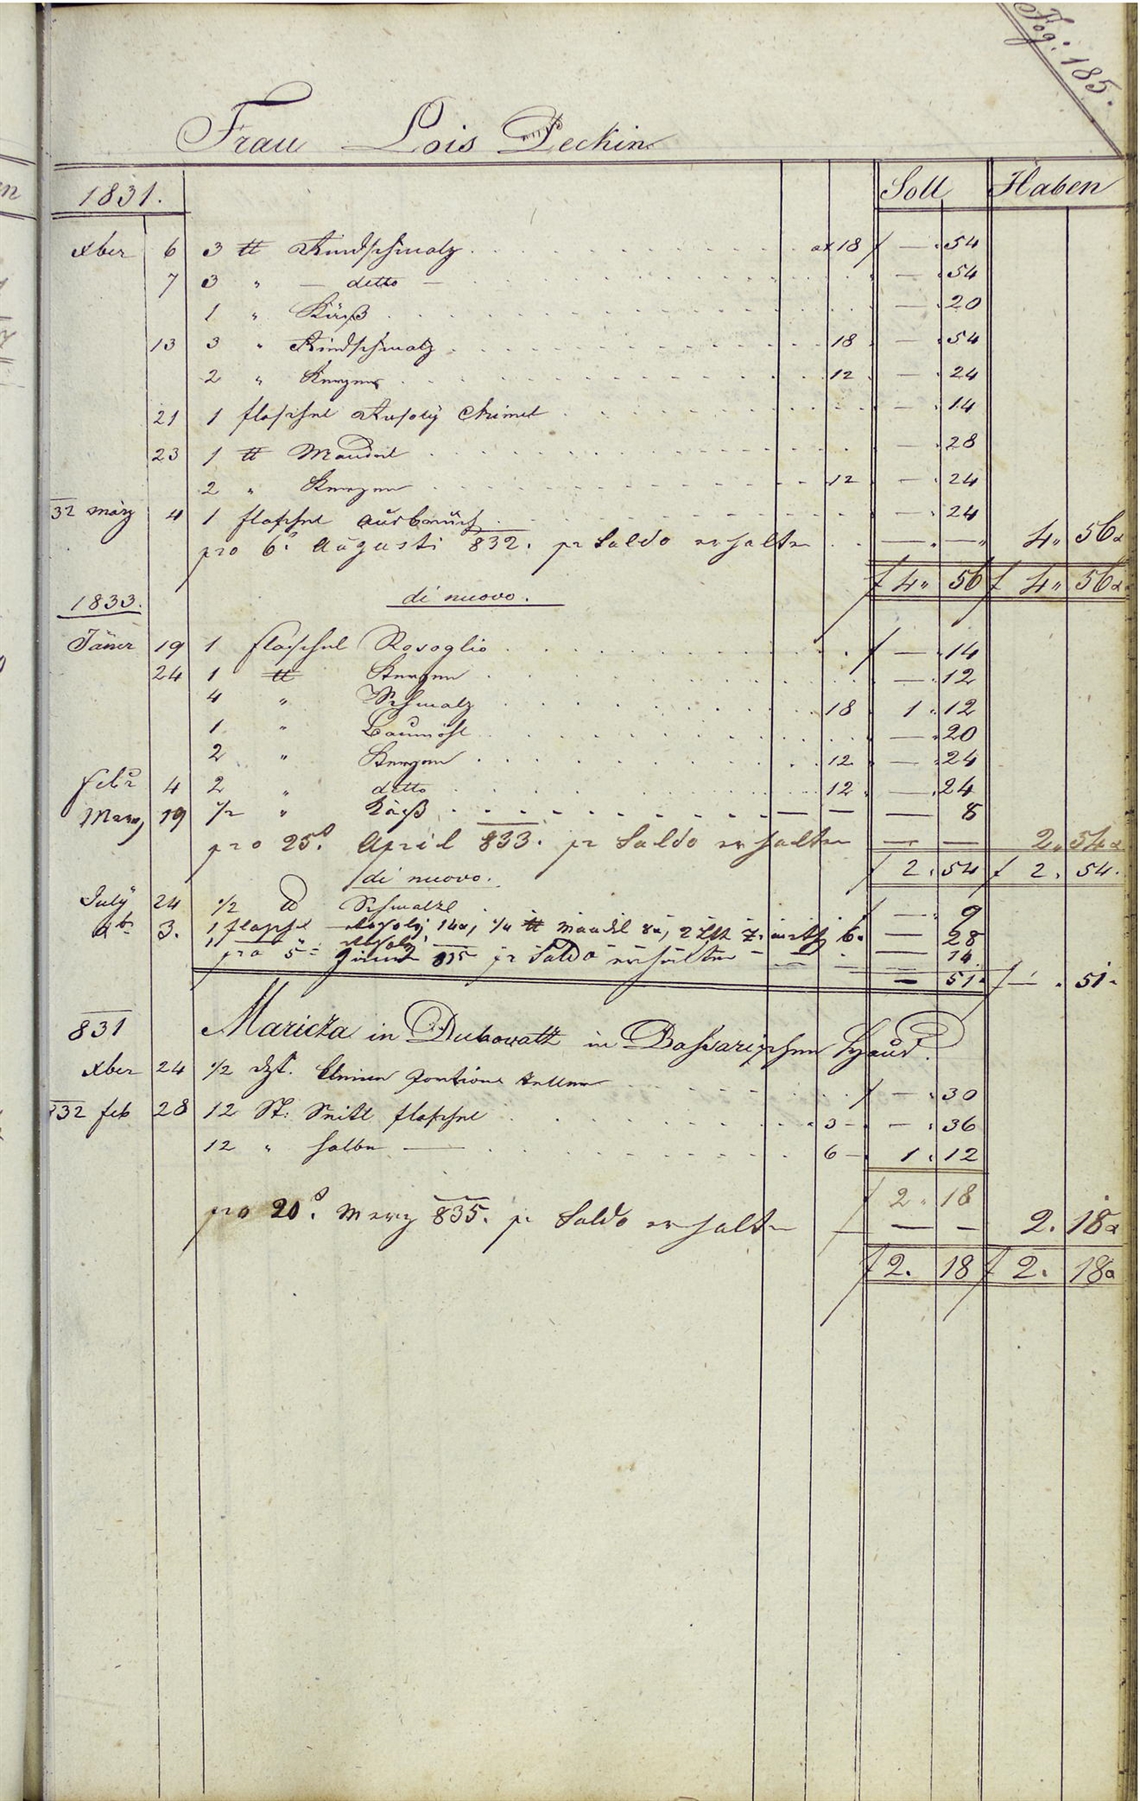 Fog: 185.
Frau Lois Deckin
1831. Soll Haben
xber 6 3 ℔ Rindschmalz . . . a 18 f — . 54
7 3 " — ditto — . . . — . 54
1 " Käß . . . — . 20
13 3 " Rindschmalz . . . 18 — . 54
2 " Kerzen . . . 12 — . 24
21 1 flaschel Rosoly . . . — . 14
23 1 ℔ Mandel . . . — . 28
2 " Kerzen . . . 12 — . 24
32 märz 4 1 flaschel Ausbruch . . . — . 24
pro 6t. Augusti 832. pr Saldo erhalten . . — . — " 4 " 56
f 4 " 56 f 4 " 56
1833. di nuovo.
Jäner 19 1 flaschel Rosoglio . . . f — . 14
24 1 ℔ Kerzen . . . — . 12
4 " Schmalz . . . 18 1 . 12
1 " Baumöhl . . . — . 20
2 " Kerzen . . . 12 — . 24
febr 4 2 " ditto . . . 12 — . 24
Merz 19 1/2 " Käß . . . — 8
pro 25t. April 833. pr Saldo erhalten — — 2 " 54
di nuovo. f 2 . 54 f 2 . 54 .
July 24 1/2 ℔ Schmalz . f — . 9
3. 1 flaschel Rosoly 14x, 1/4 ℔ Mandel 8x, 2 Lth Zimeth 6x — 28
1 " Rosoly — 14.
pro 5t 835 pr Saldo erhalten — 51 . f — . 51 .
831 Maricza in Dubowatz in Haus.
xber 24 1/2 kleine . . . f — . 30
832 feb 28 12 St: Seitl flaschel . . . 3 — — . 36
12 " halbe — . . . 6 — 1 . 12
f 2 . 18
pro 20t. Merz 835. pr Saldo erhalten — — — 2 . 18
f 2 . 18 f 2 . 18